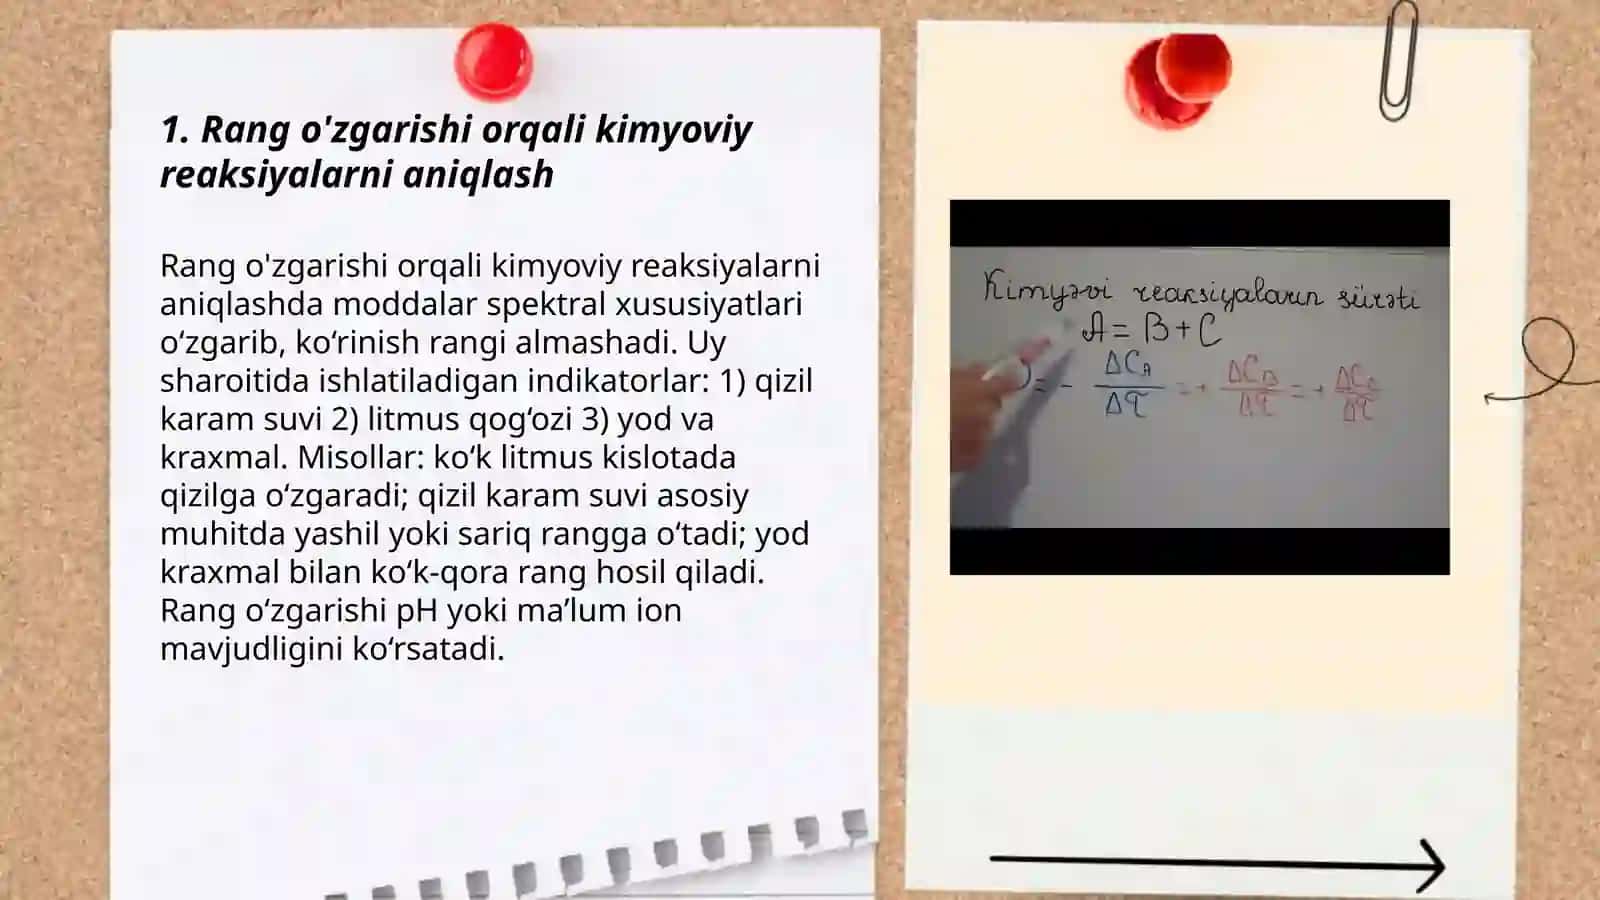 1. Rang o'zgarishi orqali kimyoviy
reaksiyalarni aniqlash
Rang o'zgarishi orqali kimyoviy reaksiyalarni
aniqlashda moddalar spektral xususiyatlari
o‘zgarib, ko‘rinish rangi almashadi. Uy
sharoitida ishlatiladigan indikatorlar: 1) qizil
karam suvi 2) litmus qog‘ozi 3) yod va
kraxmal. Misollar: ko‘k litmus kislotada
qizilga o‘zgaradi; qizil karam suvi asosiy
muhitda yashil yoki sariq rangga o‘tadi; yod
kraxmal bilan ko‘k-qora rang hosil qiladi.
Rang o‘zgarishi pH yoki ma’lum ion
mavjudligini ko‘rsatadi.
Kimyəvi reaksiyaların sürəti
A = B + C
= - ΔC_A / Δτ = + ΔC_B / Δτ = + ΔC_C / Δτ